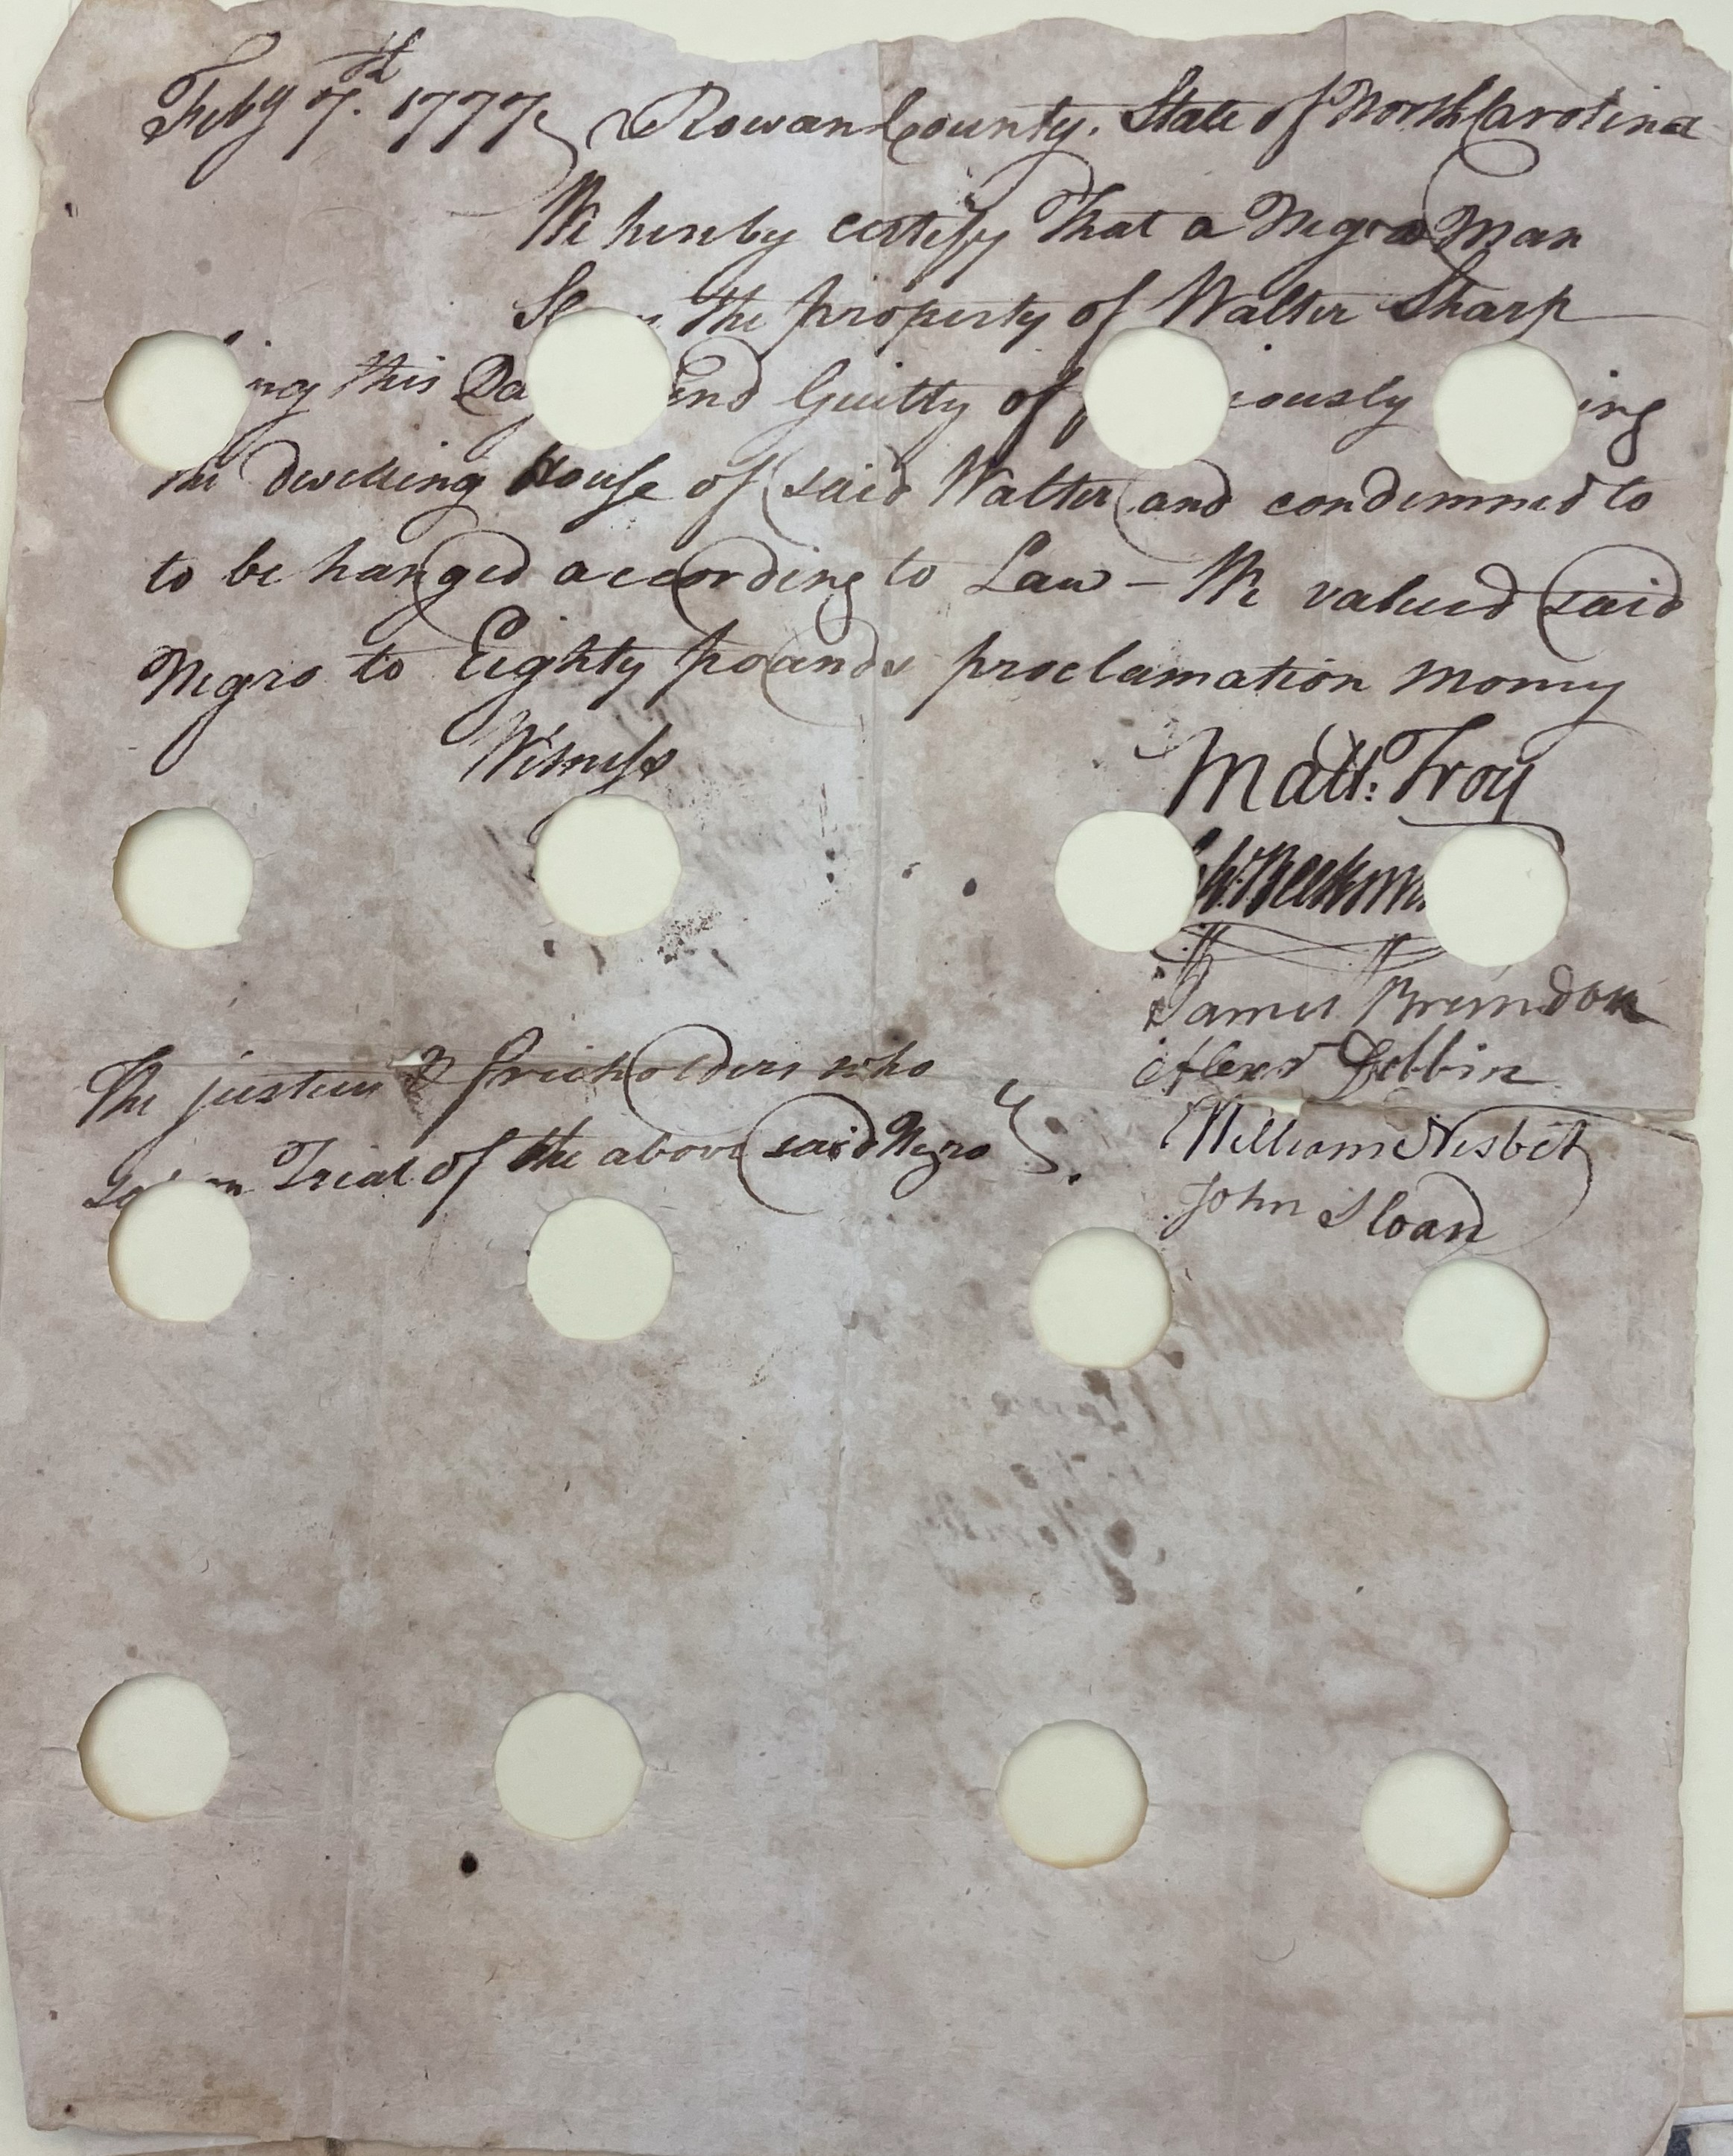 Feby 7th. 1777, Rowan County. State of North Carolina
We hereby certify That a Negro Man
the property of Walter Sharp
this Guilty of
the dwelling House of said Walter and condemned to
to be hanged according to Law – We valued said
Negro to Eighty pounds proclamation money
Witness
Matt: Troy
James Brandon
Alexr Dobbin
William Nisbet
John Sloan
The justices & freeholders who
on Trial of the above said Negro